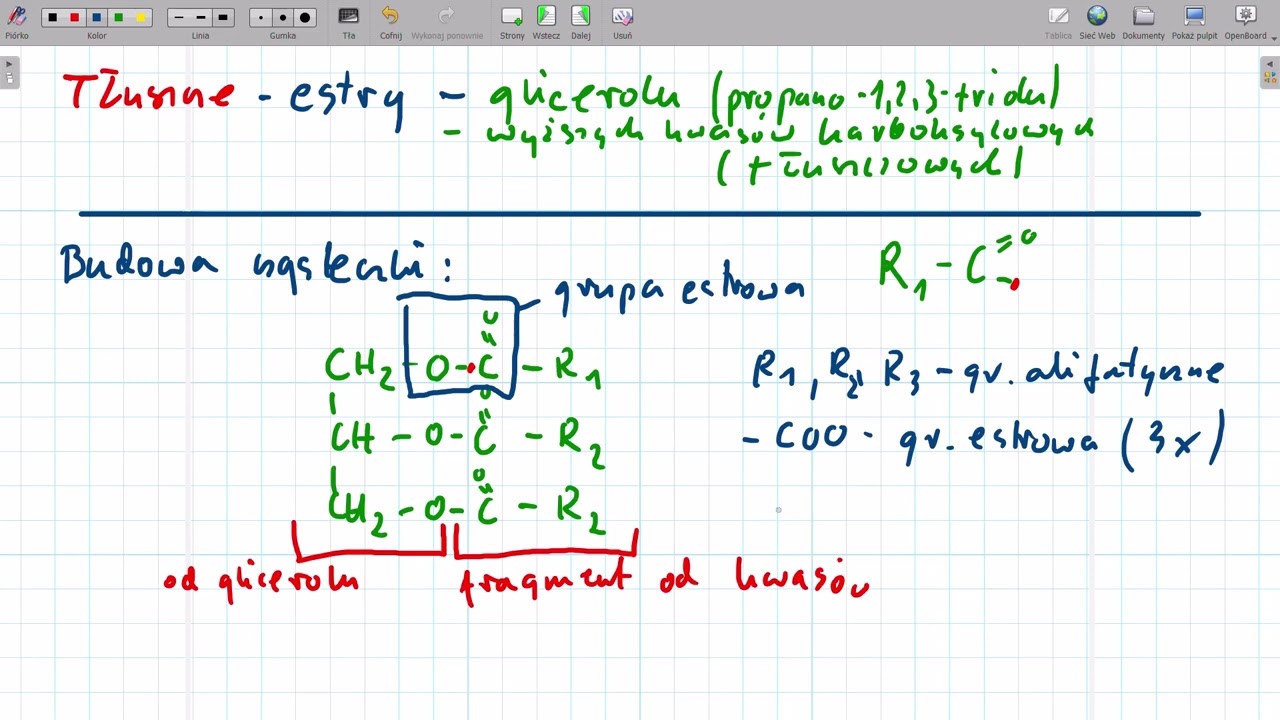 Piórko
Kolor
Linia
Gumka
Tła
Cofnij
Wykonaj ponownie
Strony
Wstecz
Dalej
Usuń
Tablica
Sieć Web
Dokumenty
Pokaż pulpit
OpenBoard
Tłuszcze - estry - glicerolu (propano-1,2,3-triolu)
- wyższych kwasów karboksylowych
(tłuszczowych)
Budowa cząsteczki:
R1 - C = O
grupa estrowa
O
CH2 - O - C - R1
R1, R2, R3 - gr. alifatyczne
O
CH - O - C - R2
- COO - gr. estrowa (3x)
O
CH2 - O - C - R2
od glicerolu
fragment od kwasów